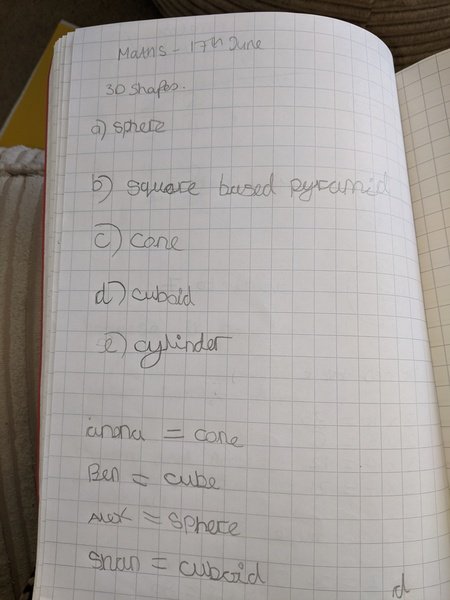 Maths - 17th June
3D shapes.
a) sphere
b) square based pyramid
c) cone
d) cuboid
e) cylinder
= cone
Ben = cube
Alex = sphere
= cuboid
d